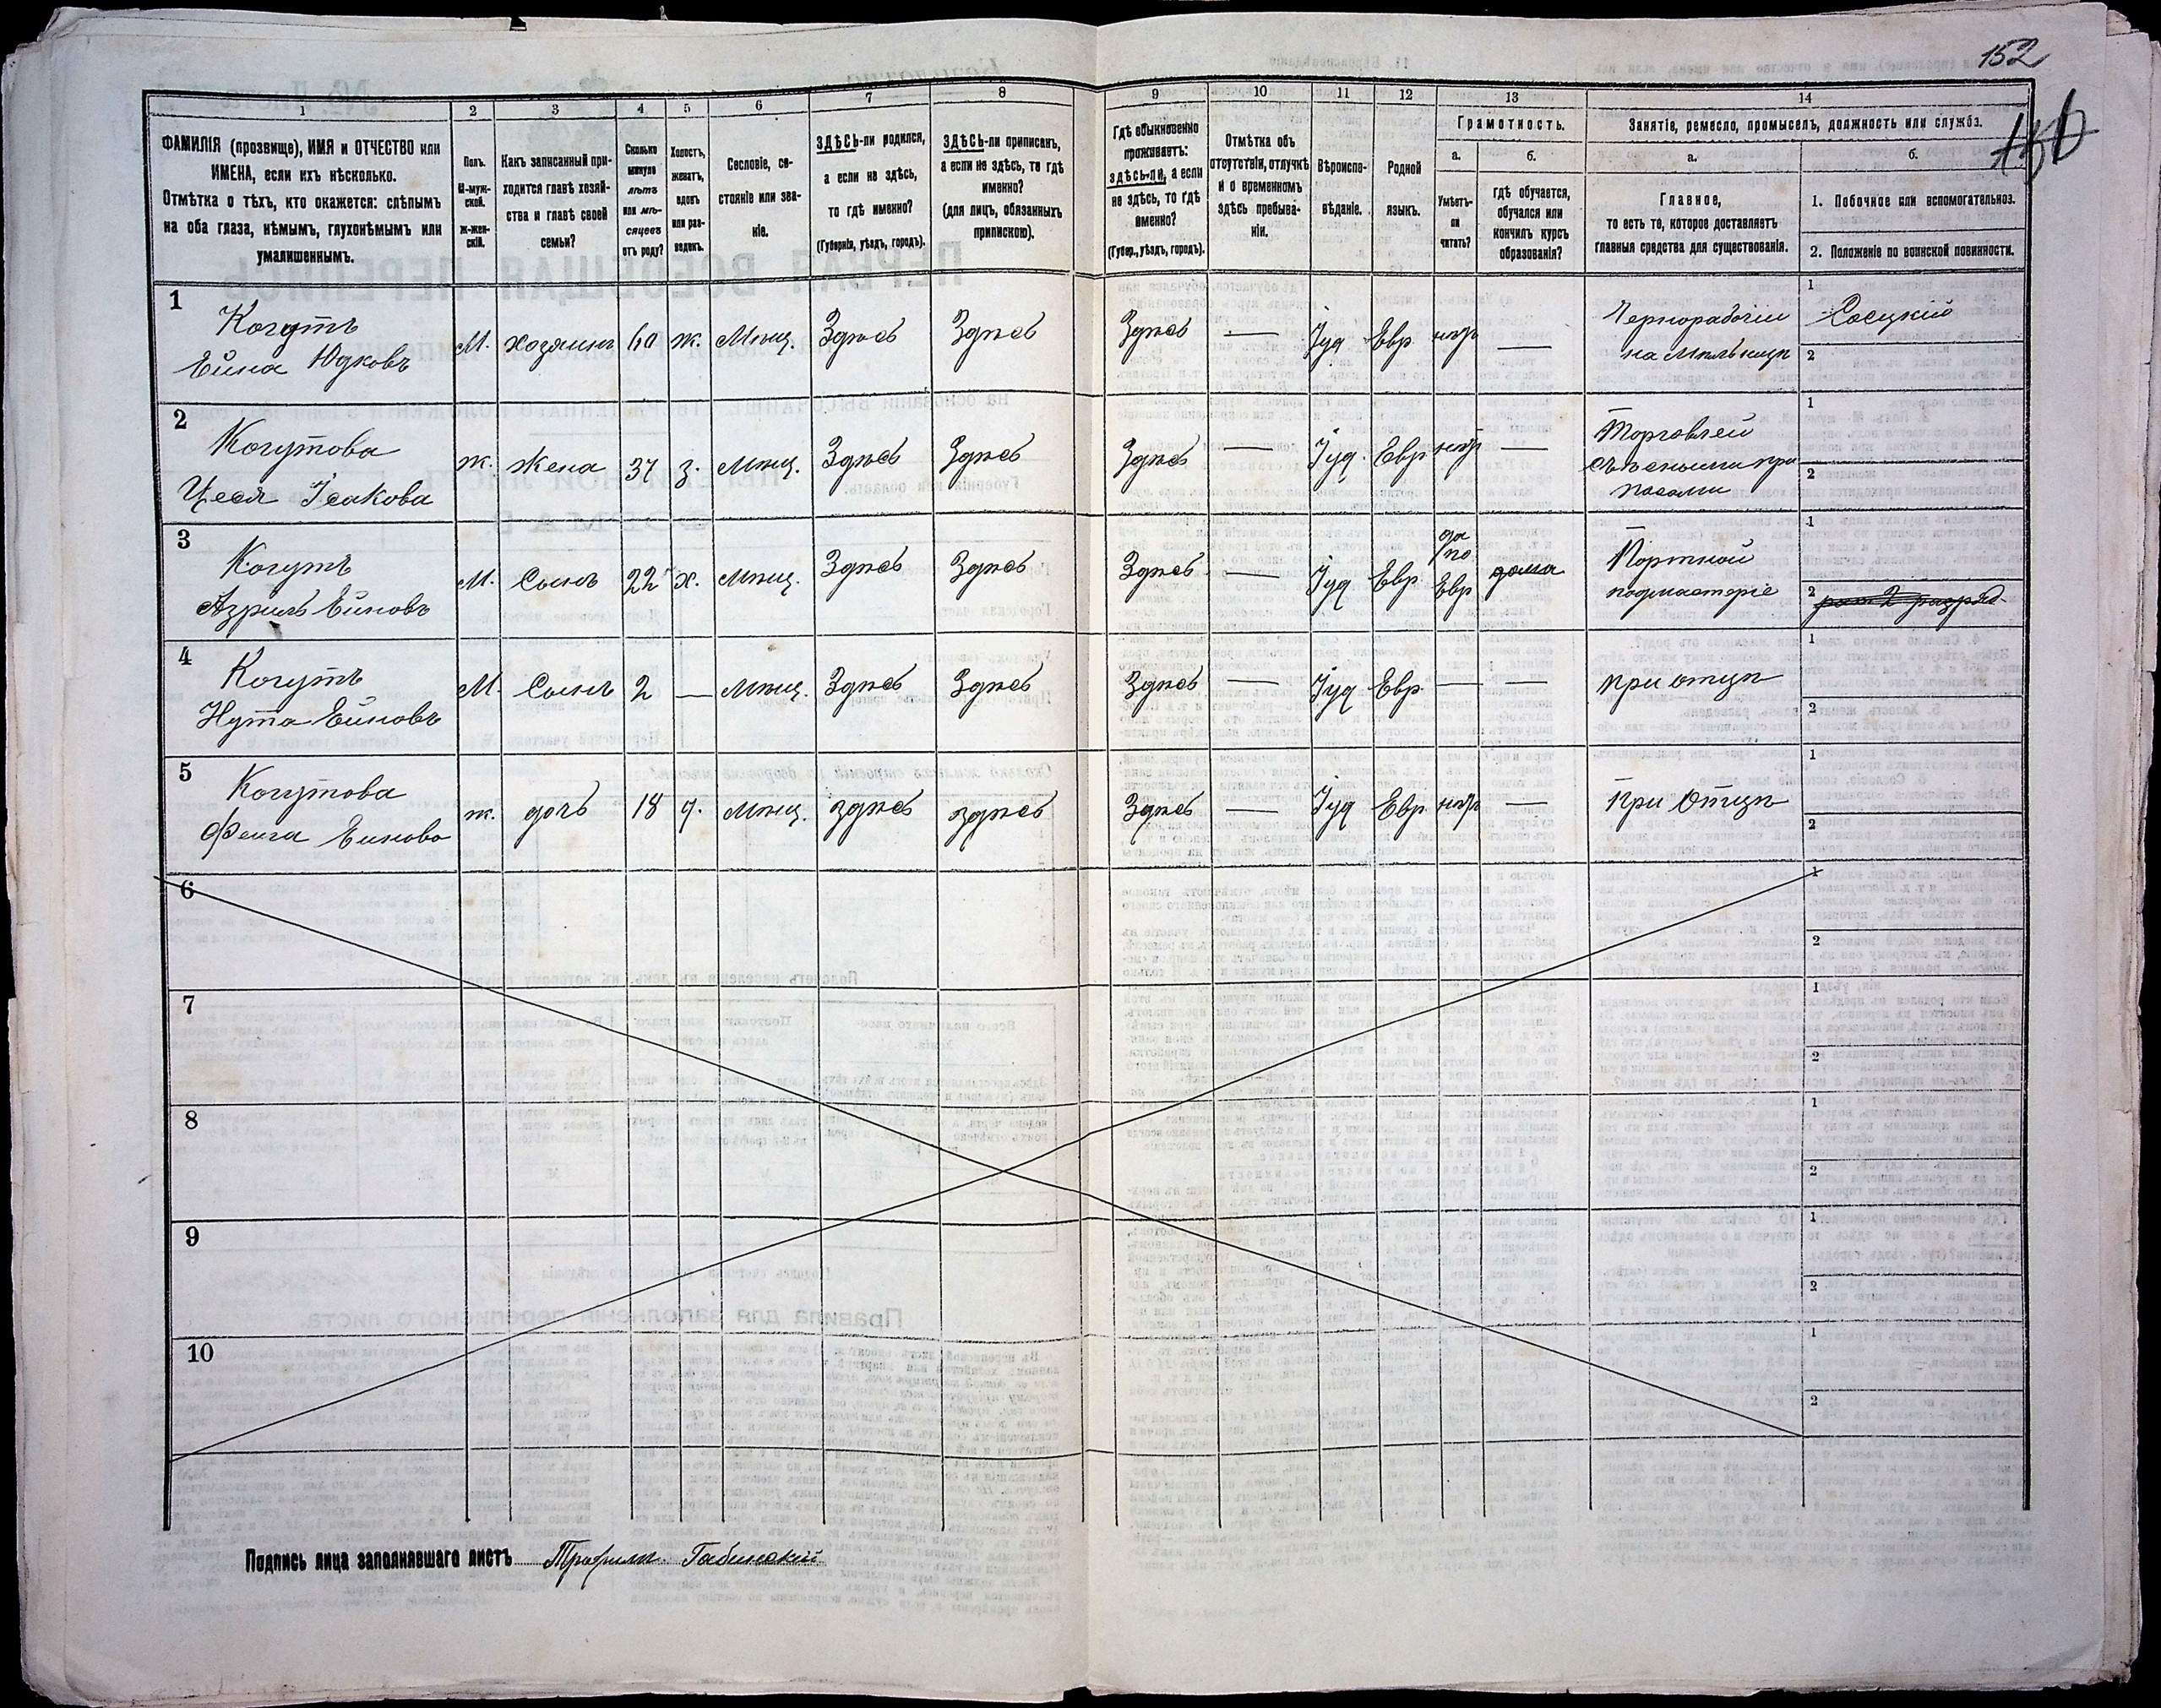 152
130
1
2
3
4
5
6
7
8
9
10
11
12
13
14
ФАМИЛІЯ (прозвище), ИМЯ и ОТЧЕСТВО или
ИМЕНА, если ихъ нѣсколько.
Отмѣтка о тѣхъ, кто окажется: слѣпымъ
на оба глаза, нѣмымъ, глухонѣмымъ или
умалишеннымъ.
Полъ.
М-муж-
ской.
Ж-жен-
скій.
Какъ записанный при-
ходится главѣ хозяй-
ства и главѣ своей
семьи?
Сколько
минуло
лѣтъ
или мѣ-
сяцевъ
отъ роду?
Холостъ,
женатъ,
вдовъ
или раз-
веденъ.
Сословіе, со-
стояніе или зва-
ніе.
ЗДѢСЬ-ли родился,
а если не здѣсь,
то гдѣ именно?
(Губернія, уѣздъ, городъ).
ЗДѢСЬ-ли приписанъ,
а если не здѣсь, то гдѣ
именно?
(для лицъ, обязанныхъ
припискою).
Гдѣ обыкновенно
проживаетъ:
здѣсь-ли, а если
не здѣсь, то гдѣ
именно?
(Губер., уѣздъ, городъ).
Отмѣтка объ
отсутствіи, отлучкѣ
и о временномъ
здѣсь пребыва-
ніи.
Вѣроиспо-
вѣданіе.
Родной
языкъ.
Грамотность.
а.
Умѣетъ-
ли
читать?
б.
гдѣ обучается,
обучался или
кончилъ курсъ
образованія?
Занятіе, ремесло, промыселъ, должность или служба.
а.
Главное,
то есть то, которое доставляетъ
главныя средства для существованія.
б.
1. Побочное или вспомогательное.
2. Положеніе по воинской повинности.
1
Когутъ
Ейна Юдковъ
М.
хозяинъ
60
ж.
Мѣщ.
Здѣсь
Здѣсь
Здѣсь
—
Іуд
Евр
нѣтъ
—
Чернорабочій
на мельницѣ
1
Сосѣцкій
2
2
Когутова
Цеся Ісакова
ж.
жена
37
з.
Мѣщ.
Здѣсь
Здѣсь
Здѣсь
—
Іуд.
Евр
нѣтъ
—
Торговлей
съѣсными при
пасами
1
2
3
Когутъ
Азрилъ Ейновъ
М.
Сынъ
22
х.
Мѣщ.
Здѣсь
Здѣсь
Здѣсь
—
Іуд
Евр
да
по
Евр
дома
Портной
подмастеріе
1
2
4
Когутъ
Нута Ейновъ
М.
Сынъ
2
—
Мѣщ.
Здѣсь
Здѣсь
Здѣсь
—
Іуд
Евр
—
—
при отцѣ
1
2
5
Когутова
Фейга Ейнова
ж.
дочь
18
д.
Мѣщ.
здѣсь
здѣсь
Здѣсь
—
Іуд
Евр
нѣтъ
—
При Отцѣ
1
2
6
1
2
7
1
2
8
1
2
9
1
2
10
1
2
Подпись лица заполнявшаго листъ Трофимъ Габинскій